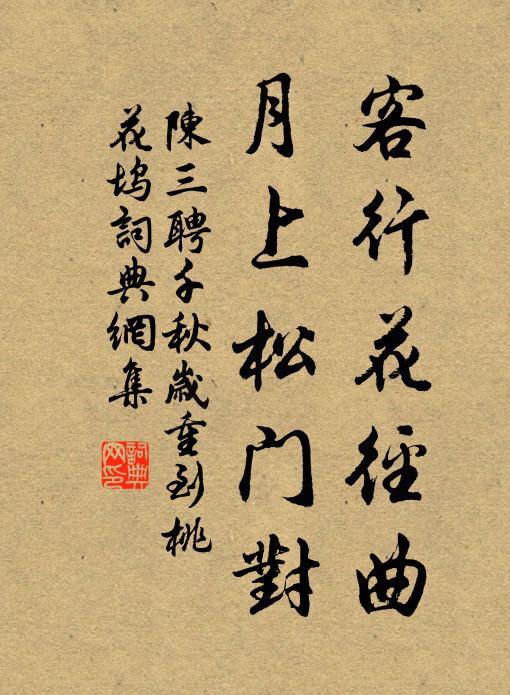 客行花徑曲
月上松门對
陳三聘千秋歲重到桃
花坞詞典網集
詞典网印